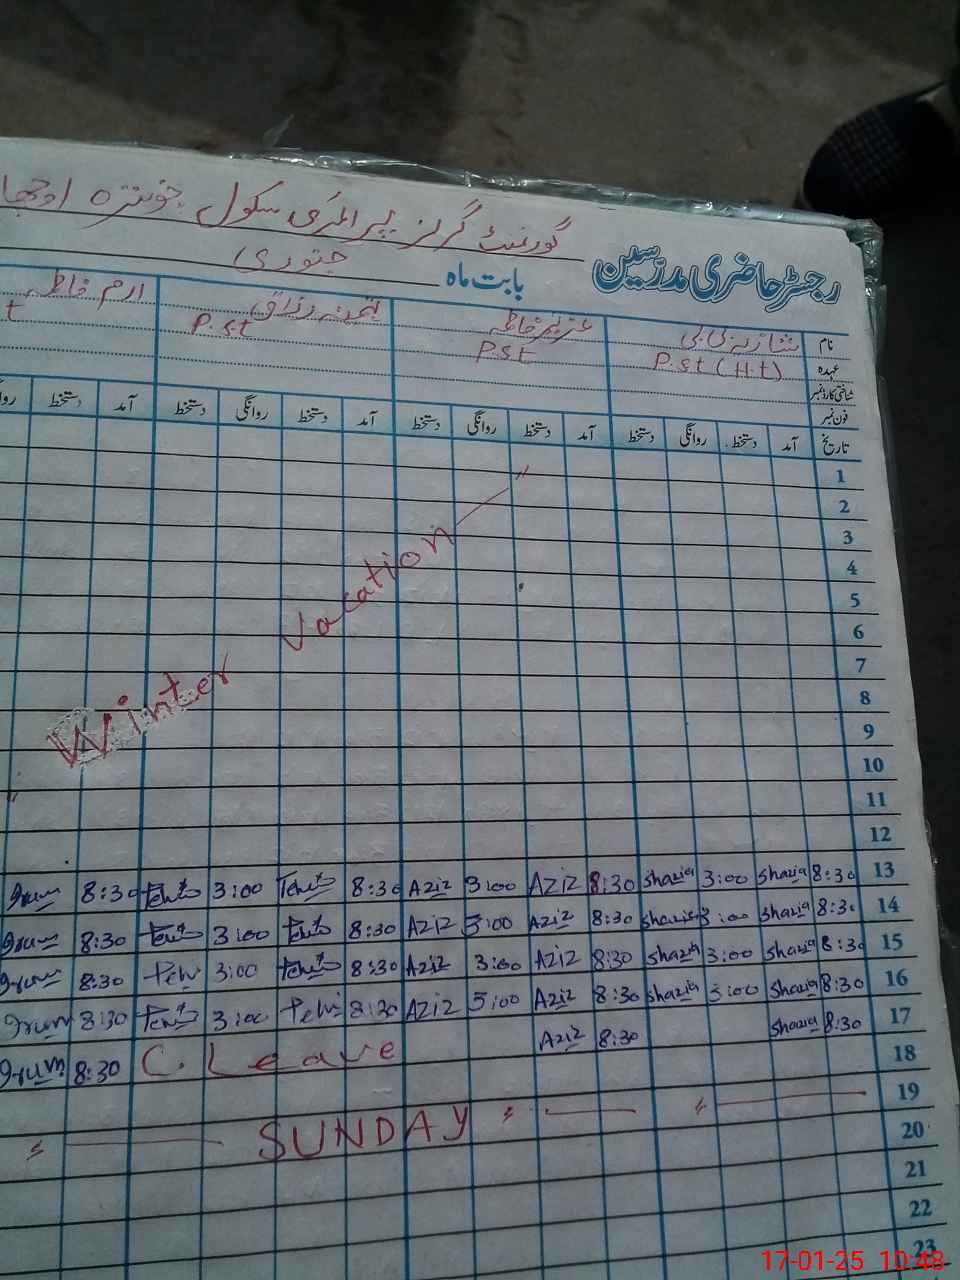 گورنمنٹ گرلز پرائمری سکول چونترہ اوجھا
رجسٹر حاضری مدرسین
بابت ماہ جنوری
نام شازیہ بی بی عزیز فاطمہ تہمینہ رزاق ارم فاطمہ
عہدہ P.st (H.t) P.st P.s.t t
شناختی کارڈ نمبر
فون نمبر
تاریخ آمد دستخط روانگی دستخط آمد دستخط روانگی دستخط آمد دستخط روانگی دستخط آمد دستخط
1 "
2
3
4
5
6
7
8
9
10
11
12
Winter Vacation
13 8:30 Shazia 3:00 Shazia 8:30 Aziz 3:00 Aziz 8:30 3:00 8:30 Irum
14 8:30 Shazia 3:00 Shazia 8:30 Aziz 3:00 Aziz 8:30 3:00 8:30 Irum
15 8:30 Shazia 3:00 Shazia 8:30 Aziz 3:00 Aziz 8:30 3:00 8:30 Irum
16 8:30 Shazia 3:00 Shazia 8:30 Aziz 3:00 Aziz 8:30 3:00 8:30 Irum
17 8:30 Shazia 8:30 Aziz C. Leave 8:30 Irum
18
19 " " SUNDAY "
20
21
22
23
17-01-25 10:48